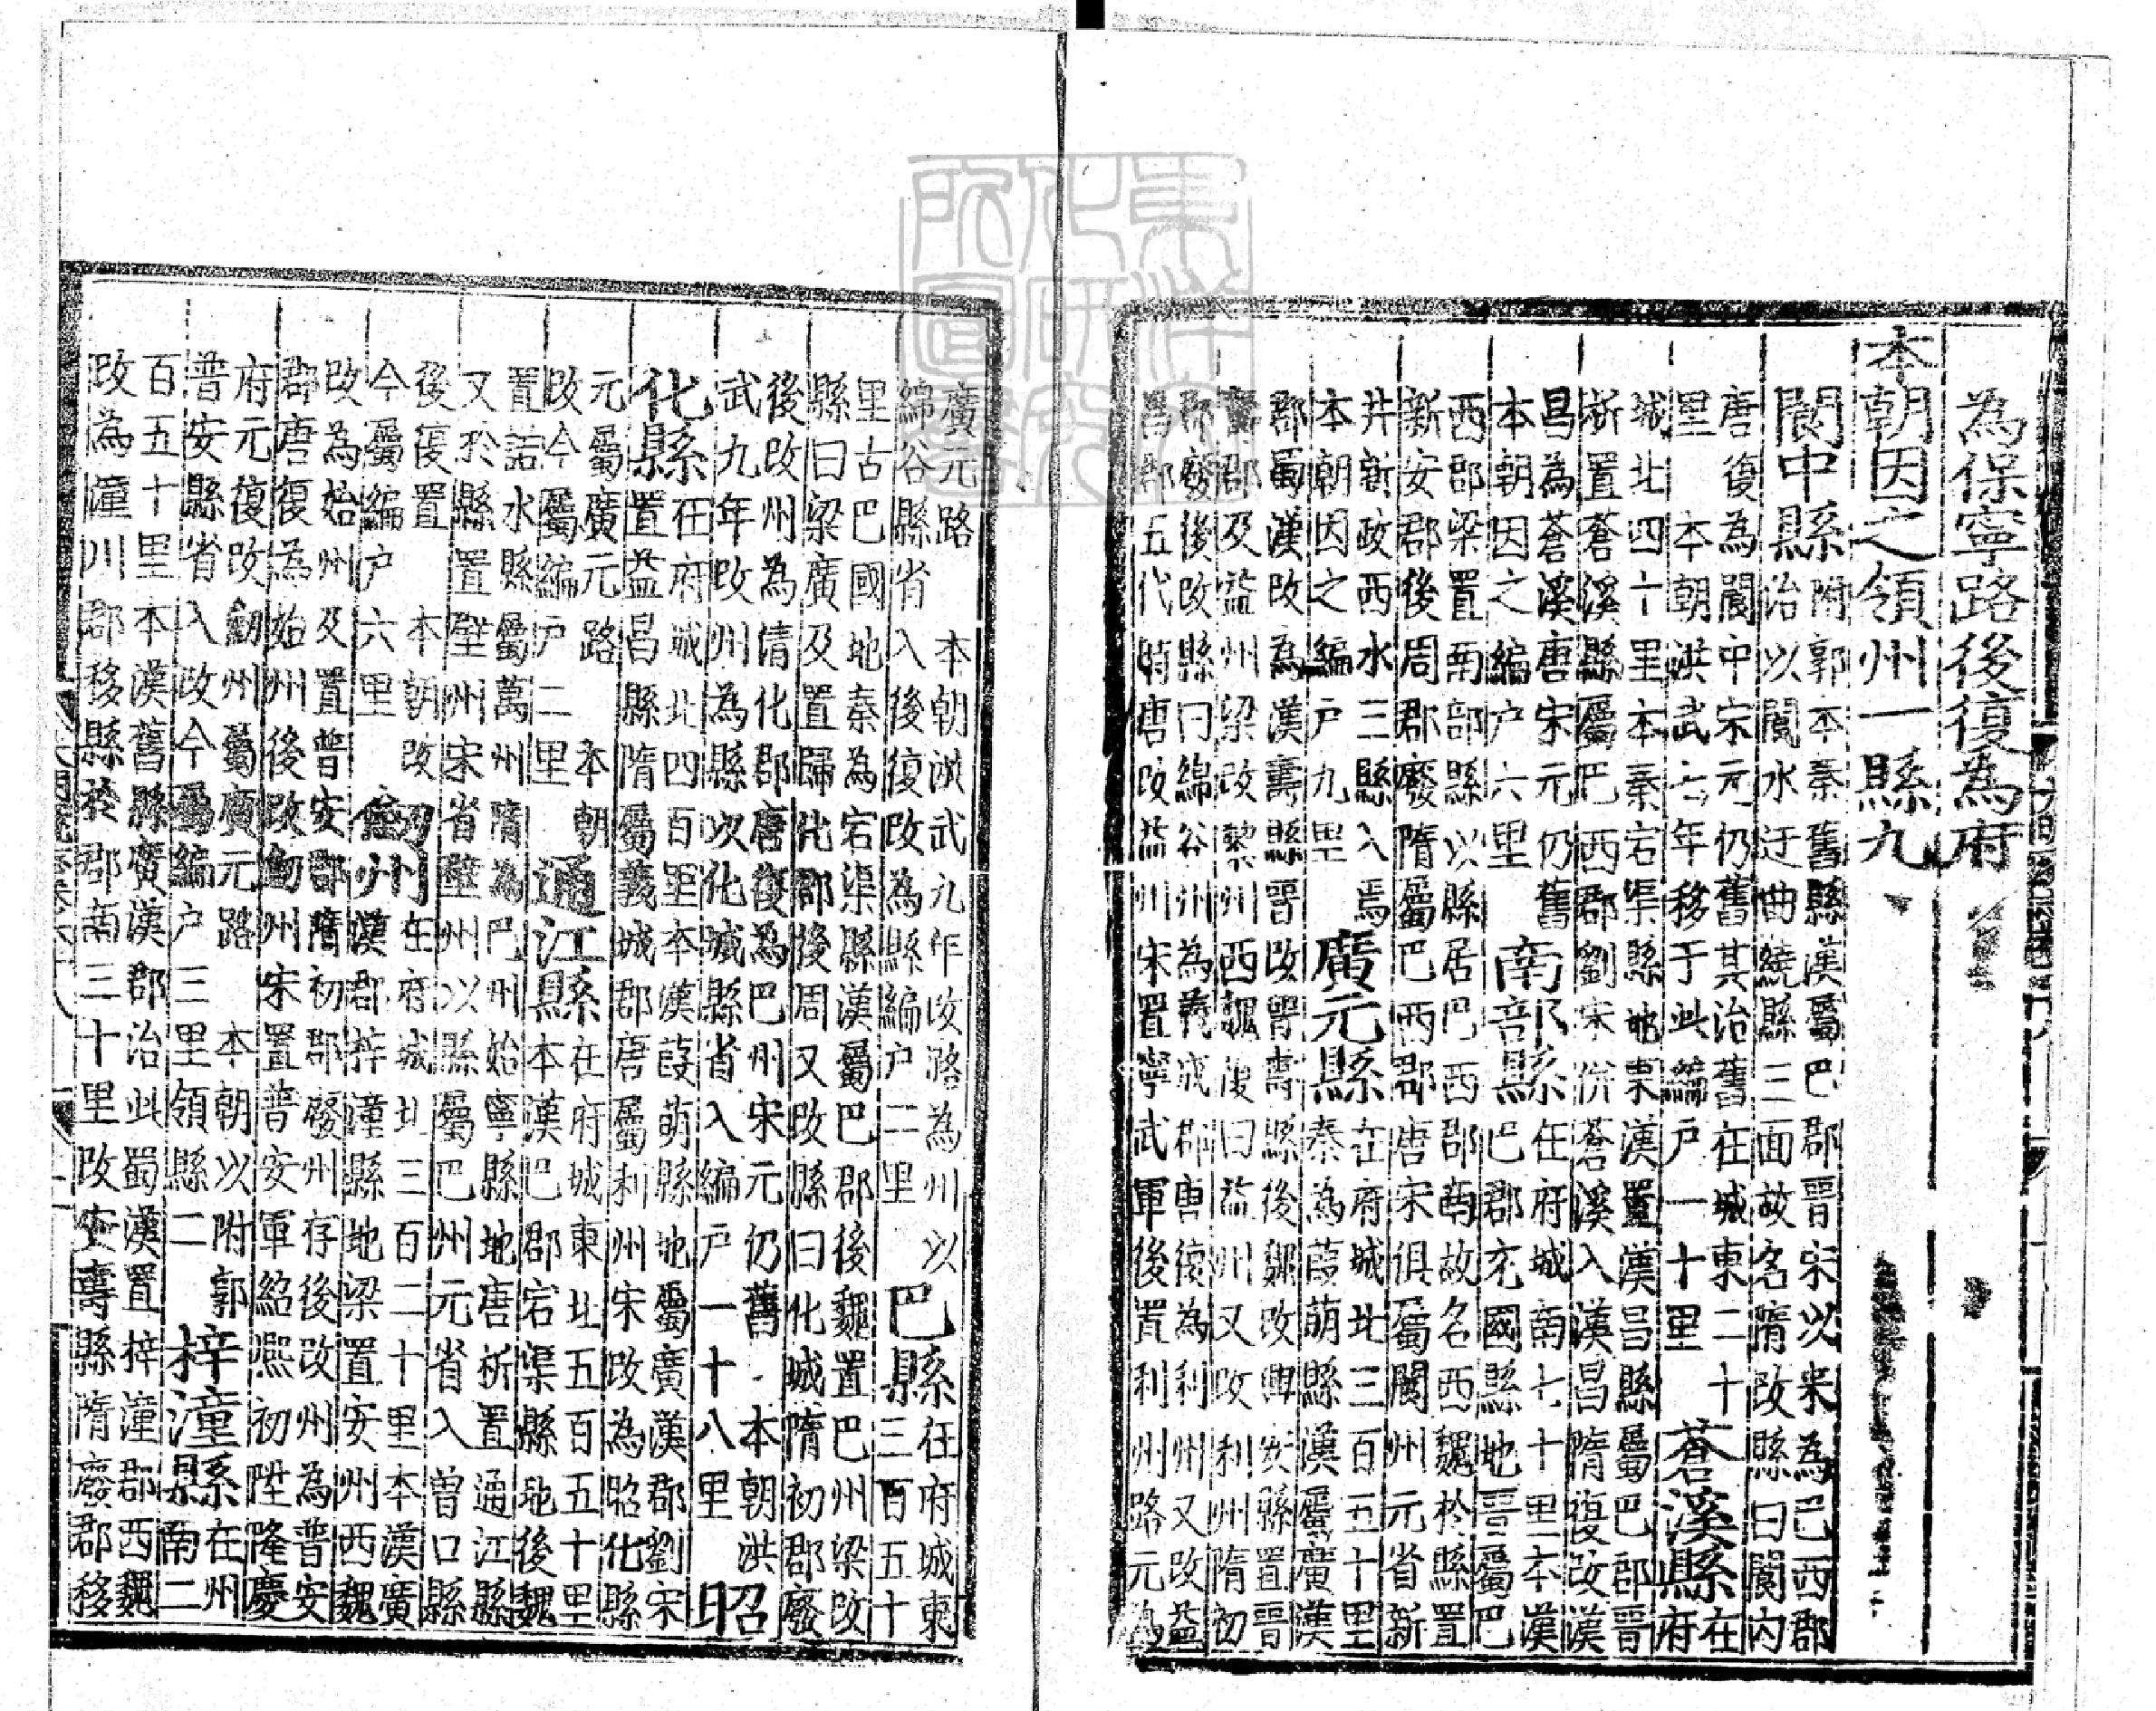 為保寧路後復為府
本朝因之領州一縣九
閬中縣附郭本秦舊縣漢屬巴郡晉宋以來為巴西郡
治以閬水迂曲繞縣三面故名隋改縣曰閬内
唐復為閬中宋元仍舊其治舊在城東二十
里 本朝洪武七年移于此編户一十里 蒼溪縣在府
城北四十里本秦宕渠縣地東漢置漢昌縣屬巴郡晉
析置蒼溪縣屬巴西郡劉宋併蒼溪入漢昌隋復改漢
昌為蒼溪唐宋元仍舊
本朝因之編户六里 南部縣在府城南七十里本漢
巴郡充國縣地晉屬巴
西郡梁置南部縣以縣居巴西郡南故名西魏於縣置
新安郡後周郡廢隋屬巴西郡唐宋俱屬閬州元省新
井新政西水三縣入焉
本朝因之編户九里 廣元縣在府城北三百五十里
秦為葭萌縣漢屬廣漢
郡蜀漢改為漢壽縣晉改晉壽縣後魏改興安縣置晉
壽郡及益州梁改黎州西魏復曰益州又改利州隋初
郡廢後改縣曰綿谷州為義成郡唐復為利州又改益
昌郡五代時唐改益川宋置寧武軍後置利州路元為
廣元路 本朝洪武九年改路為州以
綿谷縣省入後復改為縣編户二里 巴縣在府城東
三百五十
里古巴國地秦為宕渠縣漢屬巴郡後魏置巴州梁改
縣曰梁廣及置歸化郡後周又改縣曰化城隋初郡廢
後改州為清化郡唐復為巴州宋元仍舊 本朝洪
武九年改州為縣以化城縣省入編户一十八里 昭
化縣在府城北四百里本漢葭萌縣地屬廣漢郡劉宋
置益昌縣隋屬義城郡唐屬利州宋改為昭化縣
元屬廣元路 本朝
改今屬編户二里 通江縣在府城東北五百五十里
本漢巴郡宕渠縣地後魏
置諾水縣屬萬州隋為巴州始寧縣地唐析置通江縣
又於縣置壁州宋省壁州以縣屬巴州元省入曾口縣
後復置 本朝改
今屬編户六里 劒州在府城北三百二十里本漢廣
漢郡梓潼縣地梁置安州西魏
改為始州及置普安郡隋初郡廢州存後改州為普安
郡唐復為始州後改劒州宋置普安軍紹熙初陞隆慶
府元復改劒州屬廣元路 本朝以附郭
普安縣省入改今屬編户三里領縣二 梓潼縣在州
南二
百五十里本漢舊縣廣漢郡治此蜀漢置梓潼郡西魏
改為潼川郡移縣於郡南三十里改安壽縣隋廢郡移